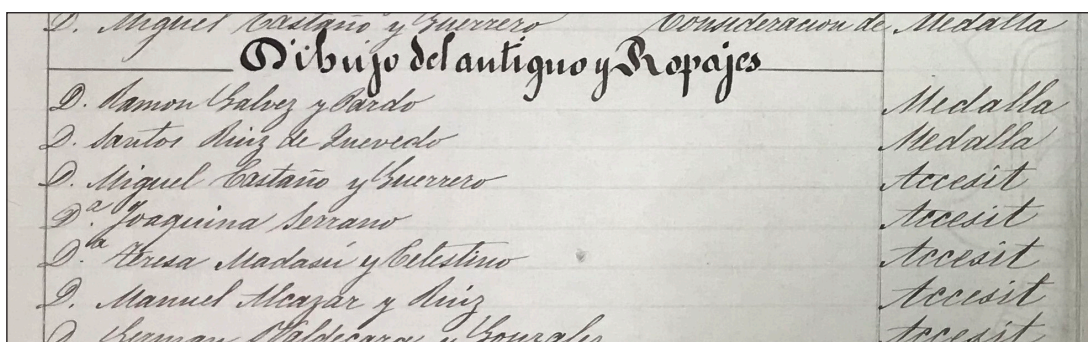 D. Miguel Castaño y Guerrero Consideracion de Medalla
Dibujo del antiguo y Ropajes
D. Ramon Galvez y Pardo Medalla
D. Santos Ruiz de Quevedo Medalla
D. Miguel Castaño y Guerrero Accesit
D.ª Joaquina Serrano Accesit
D.ª Teresa Madasú y Celestino Accesit
D. Manuel Alcazar y Ruiz Accesit
D. German Valdecara y Gonzales Accesit